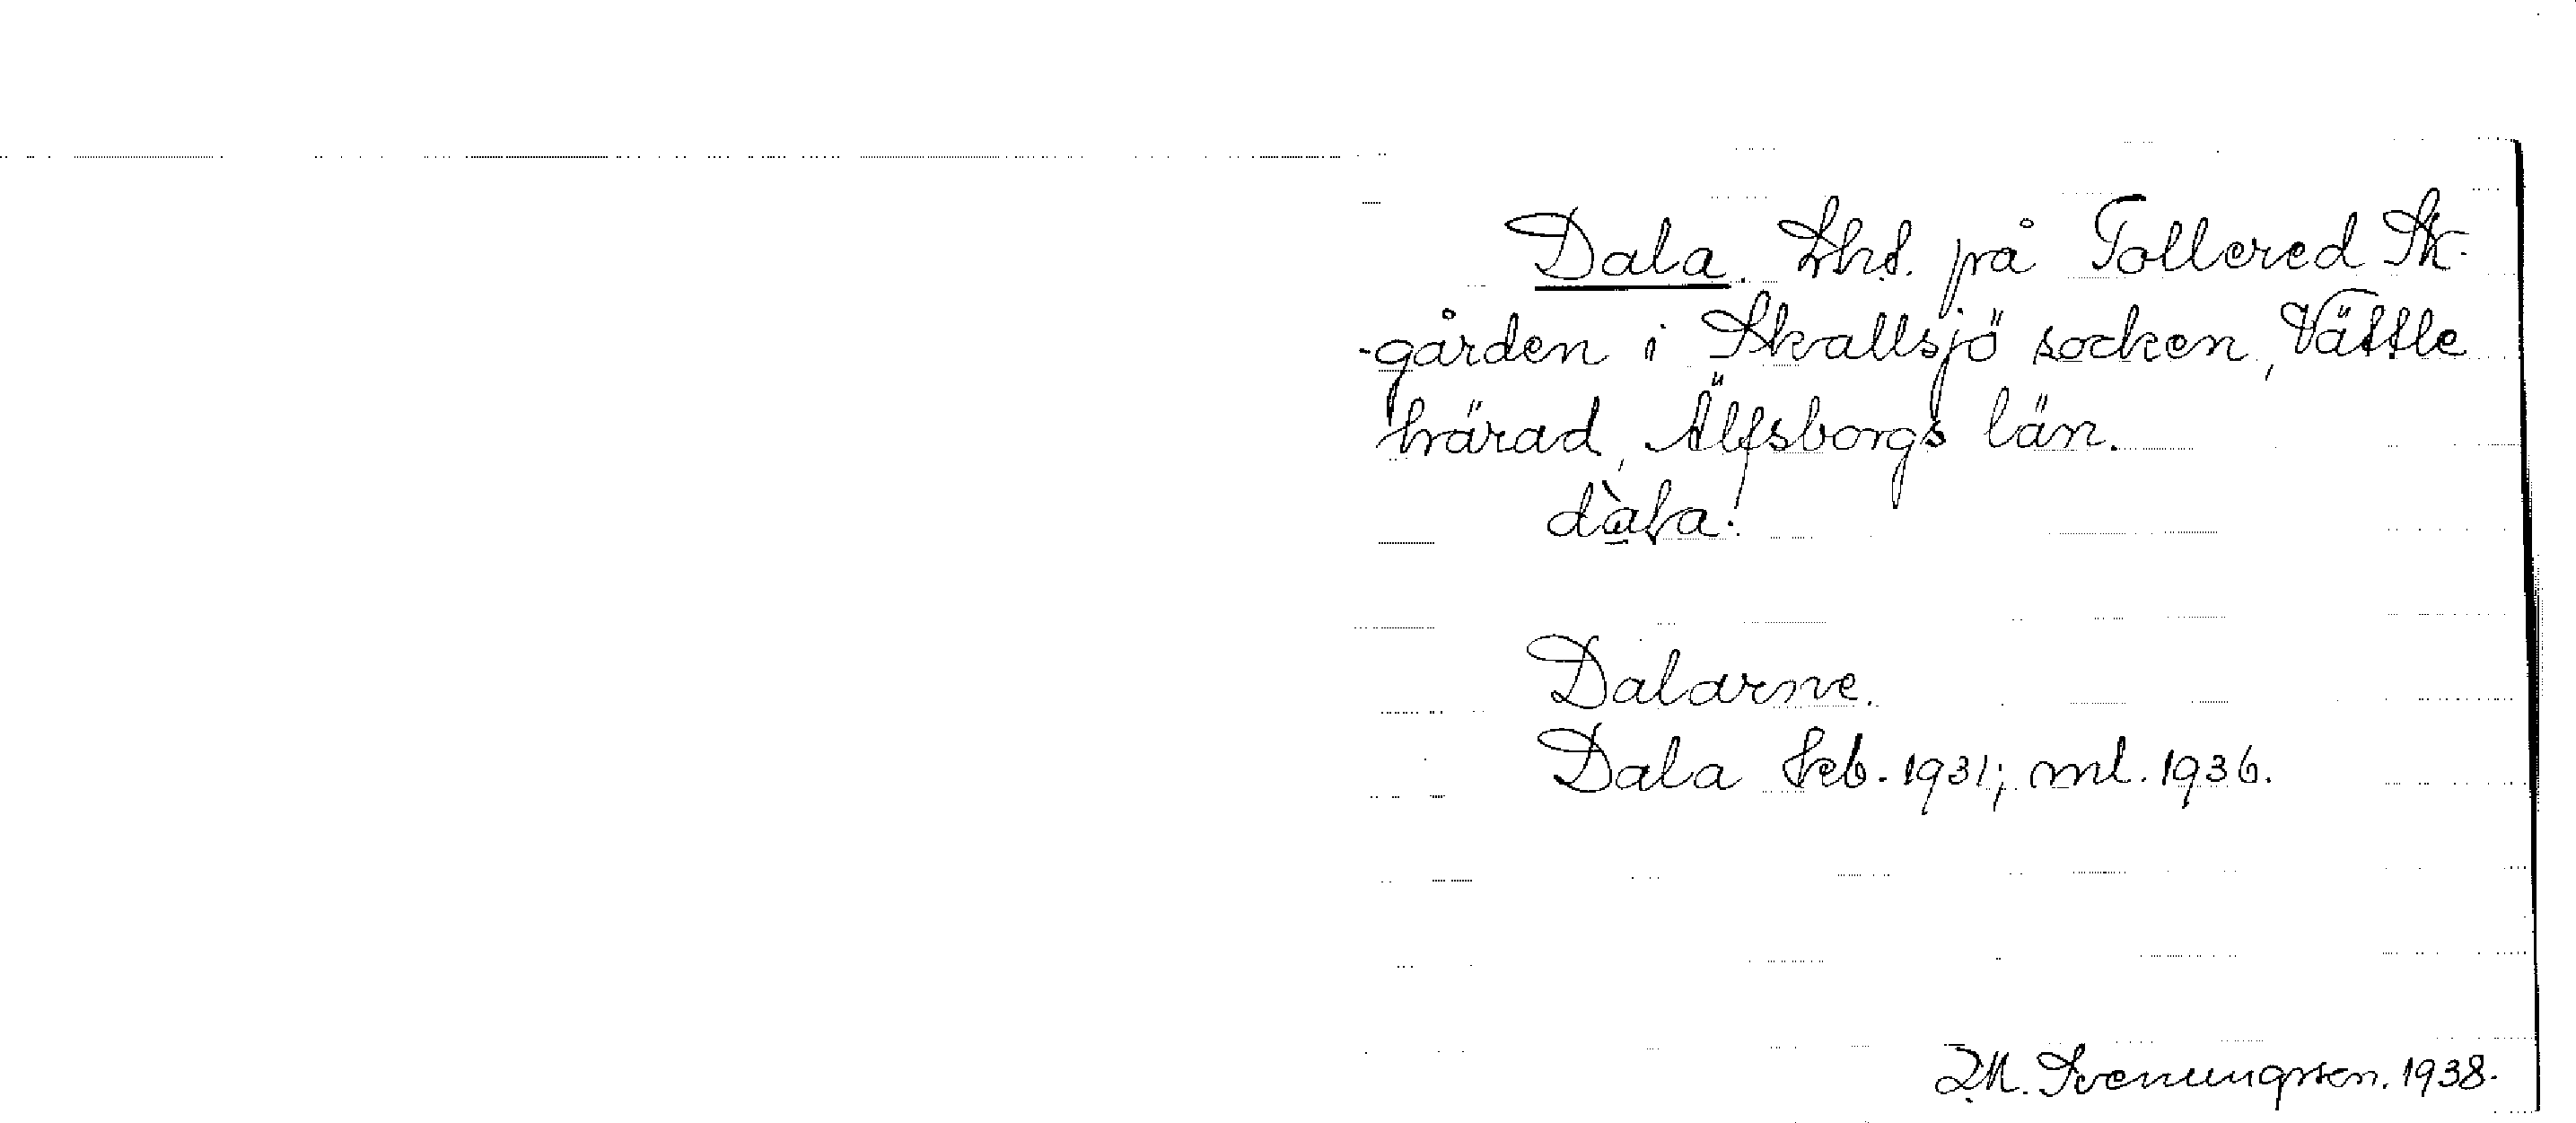 Dala. Lht. på Tollered Sk-
-gården i Skallsjö socken, Vättle
härad, Älfsborgs län.
dàla.
Dalarne.
Dala Feb. 1931; ml. 1936.
M. Svenungsson. 1938.